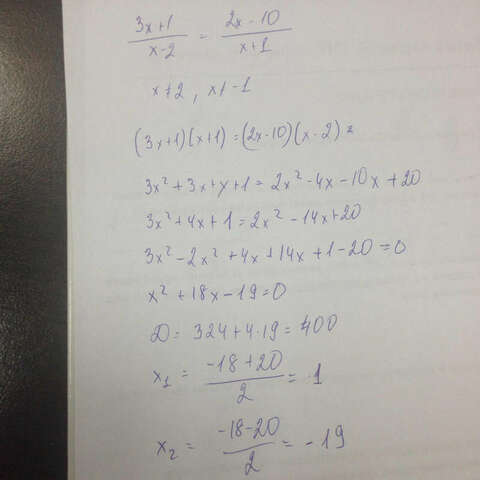 (3x+1)/(x-2) = (2x-10)/(x+1)
x≠2, x≠-1
(3x+1)(x+1)=(2x-10)(x-2)=
3x²+3x+x+1=2x²-4x-10x+20
3x²+4x+1=2x²-14x+20
3x²-2x²+4x+14x+1-20=0
x²+18x-19=0
D=324+4·19=400
x₁=(-18+20)/2=1
x₂=(-18-20)/2=-19